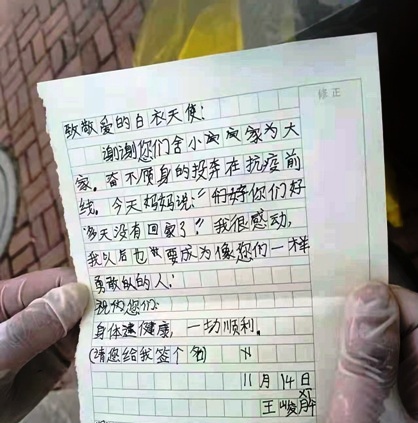 修正
致敬爱的白衣天使:
谢谢您们舍小家为大
家。奋不顾身的投奔在抗疫前
线。今天妈妈说:“你们好
多天没有回家了”我很感动,
我以后也要成为像您们一样
勇敢的人!
祝你您们:
身体健康,一切顺利。
(请您给我签个名)
11月14日
王